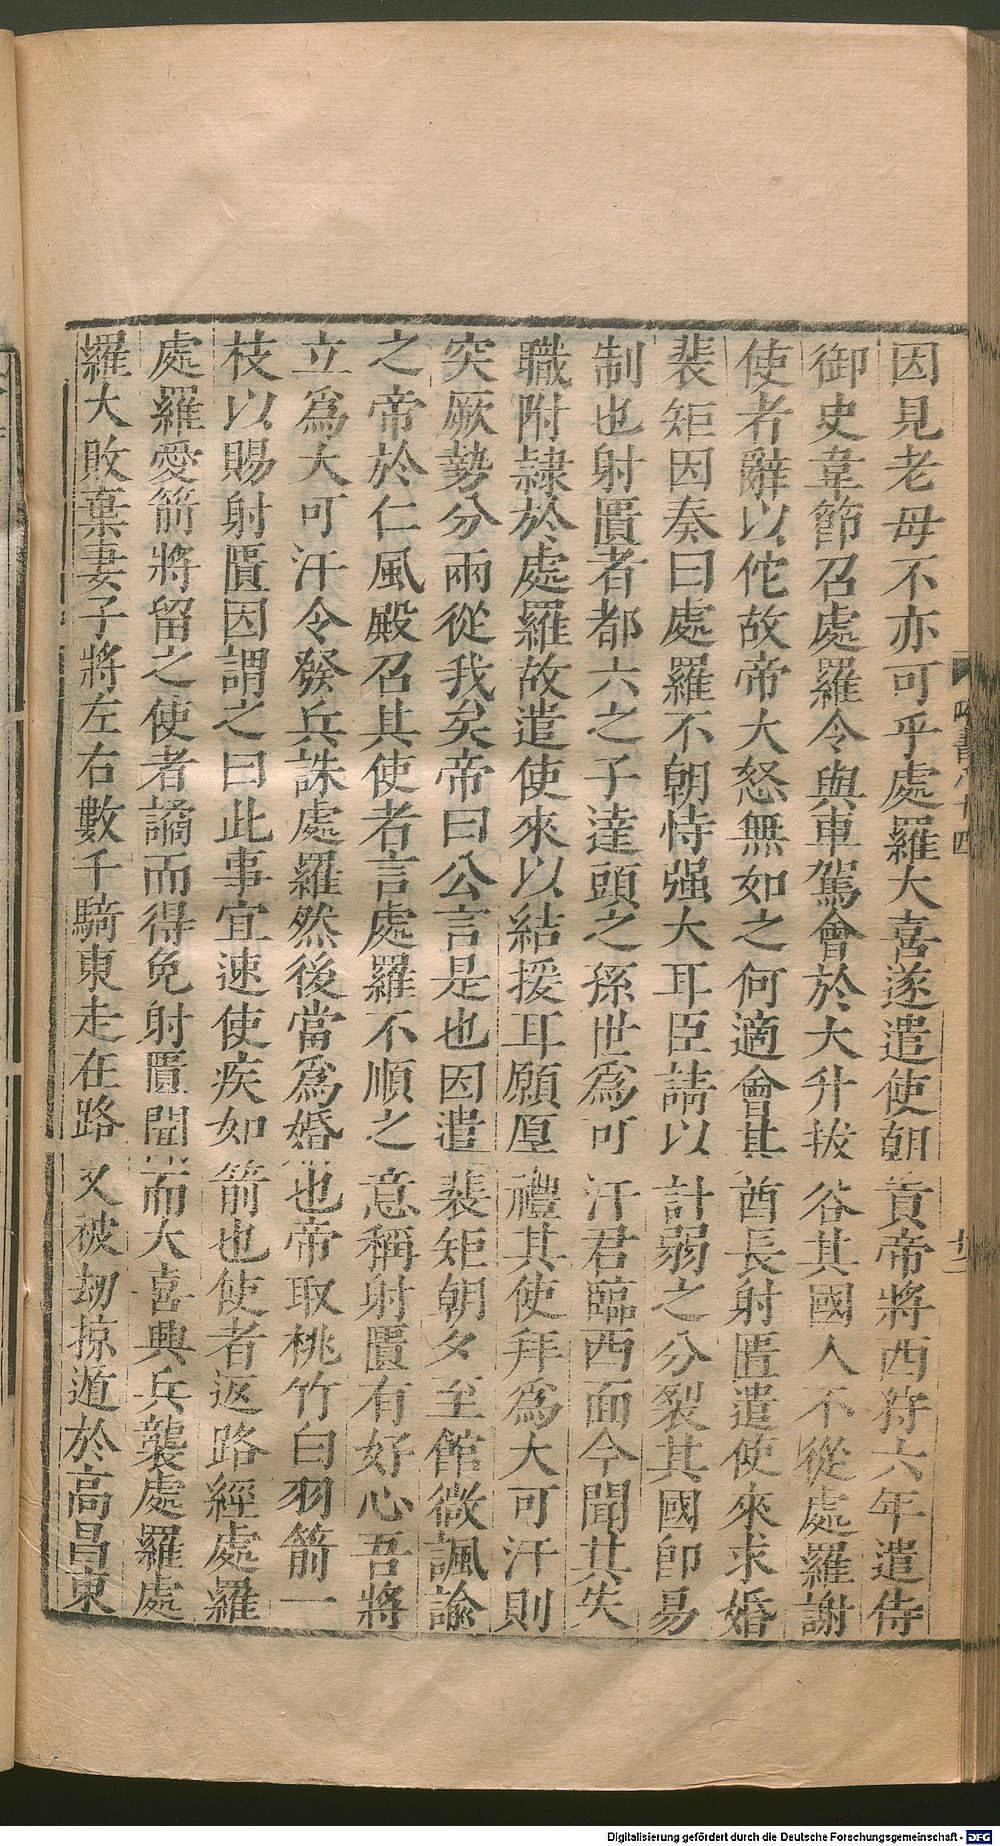 因見老母不亦可乎處羅大喜遂遣使朝貢帝將西狩六年遣侍
御史韋節召處羅令與車駕會於大升拔谷其國人不從處羅謝
使者辭以佗故帝大怒無如之何適會其酋長射匱遣使來求婚
裴矩因奏曰處羅不朝恃强大耳臣請以計弱之分裂其國卽易
制也射匱者都六之子達頭之孫世爲可汗君臨西面今聞其失
職附隷於處羅故遣使來以結援耳願厚禮其使拜爲大可汗則
突厥勢分兩從我矣帝曰公言是也因遣裴矩朝夕至館微諷諭
之帝於仁風殿召其使者言處羅不順之意稱射匱有好心吾將
立爲大可汗令發兵誅處羅然後當爲婚也帝取桃竹白羽箭一
枝以賜射匱因謂之曰此事宜速使疾如箭也使者返路經處羅
處羅愛箭將留之使者譎而得免射匱聞而大喜興兵襲處羅處
羅大敗棄妻子將左右數千騎東走在路又被劫掠遁於高昌東
Digitalisierung gefördert durch die Deutsche Forschungsgemeinschaft - DFG